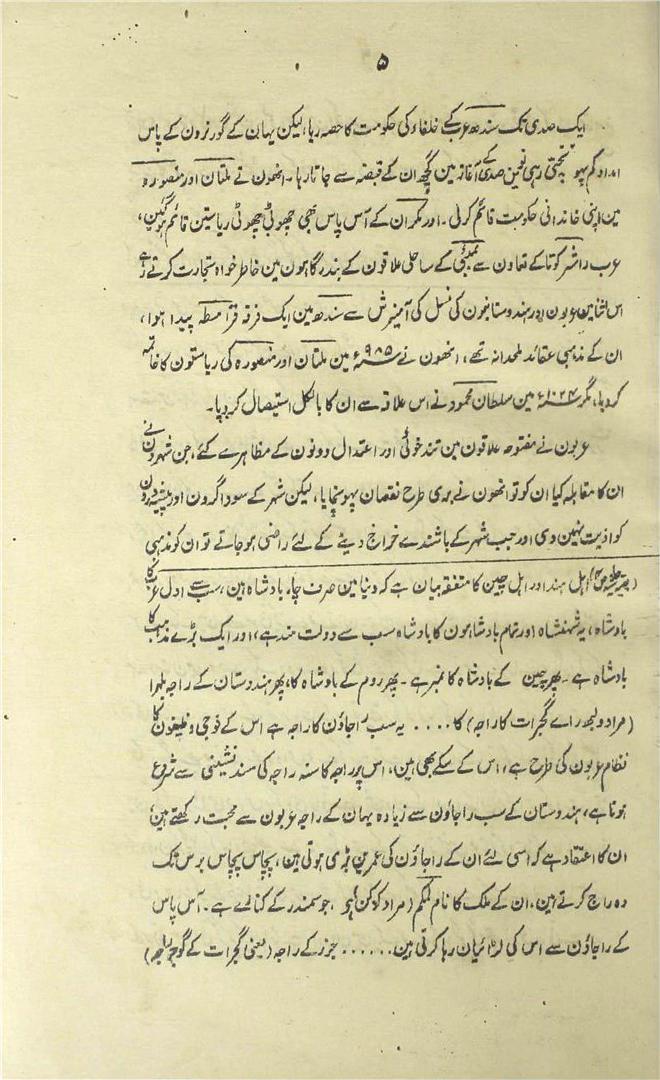 ۵
ایک صدی تک سندھ عرب کے خلفاء کی حکومت کا حصہ رہا، لیکن یہان کے گورنرون کے پاس
امداد کم پہونچتی رہی نوین صدی کے آغاز مین کچھ ان کے قبضہ سے جاتا رہا۔ انھون نے ملتان اور منصورہ
مین اپنی خاندانی حکومت قائم کرلی۔ اور مکران کے آس پاس بھی چھوٹی چھوٹی ریاستین قائم ہوگئین،
عرب راشٹر کوتا کے تعاون سے بمبئی کے ساحلی علاقون کے بندرگاہون مین خاطر خواہ تجارت کرتے رہے
اس اثنا مین عربون اور ہندوستانیون کی نسل کی آمیزش سے سندھ مین ایک فرقہ قرامطہ پیدا ہوا،
ان کے مذہبی عقائد ملحدانہ تھے، انھون نے ۹۸۵ء مین ملتان اور منصورہ کی ریاستون کا خاتمہ
کردیا، مگر ۱۰۲۴ء مین سلطان محمود نے اس علاقہ سے ان کا بالکل استیصال کردیا۔
عربون نے مفتوحہ علاقون مین تند خوئی اور اعتدال دونون کے مظاہرے کئے، جن شہرون نے
ان کا مقابلہ کیا ان کو تو انھون نے بری طرح نقصان پہونچایا، لیکن شہر کے سوداگرون اور پیشہ ورون
کو اذیت نہین دی اور جب شہر کے باشندے خراج دینے کے لئے راضی ہوجاتے تو ان کو مذہبی
(بقیہ حاشیہ ص) اہل ہند اور اہل چین کا متفقہ بیان ہے کہ دنیا مین صرف چار بادشاہ ہین، سب سے اول عرب کا
بادشاہ، یہ شہنشاہ اور تمام بادشاہون کا بادشاہ سب سے دولت مند ہے، اور ایک بڑے مذہب کا
بادشاہ ہے۔ پھر چین کے بادشاہ کا نمبر ہے۔ پھر روم کے بادشاہ کا، پھر ہندوستان کے راجہ بلہرا
(مراد ولبھ راے گجرات کا راجہ) کا .... یہ سب راجاؤن کا راجہ ہے اس کے فوجی وظیفون کا
نظام عربون کی طرح ہے، اس کے سکے بھی ہین، اس پر راجہ کا سنہ راجہ کی مسند نشینی سے شروع
ہوتا ہے، ہندوستان کے سب راجاؤن سے زیادہ یہان کے راجہ عربون سے محبت رکھتے ہین
ان کا اعتقاد ہے کہ اسی لئے ان کے راجاؤن کی عمرین بڑی ہوتی ہین، پچاس پچاس برس تک
وہ راج کرتے ہین، ان کے ملک کا نام کمکم (مراد کوکن) ہو، جو سمندر کے کنارے ہے۔ آس پاس
کے راجاؤن سے اس کی لڑائیان رہا کرتی ہین...... جزر کے راجہ (یعنی گجرات کے گوجر راجہ)